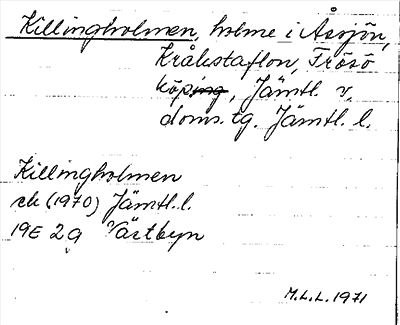 Killingholmen, holme i Åsjön,
Kråkstaflon, Frösö
köping, Jämtl. v.
doms. tg. Jämtl. l.
Killingholmen
ek (1970) Jämtl. l.
19E 2g Västbyn
M.L.L. 1971